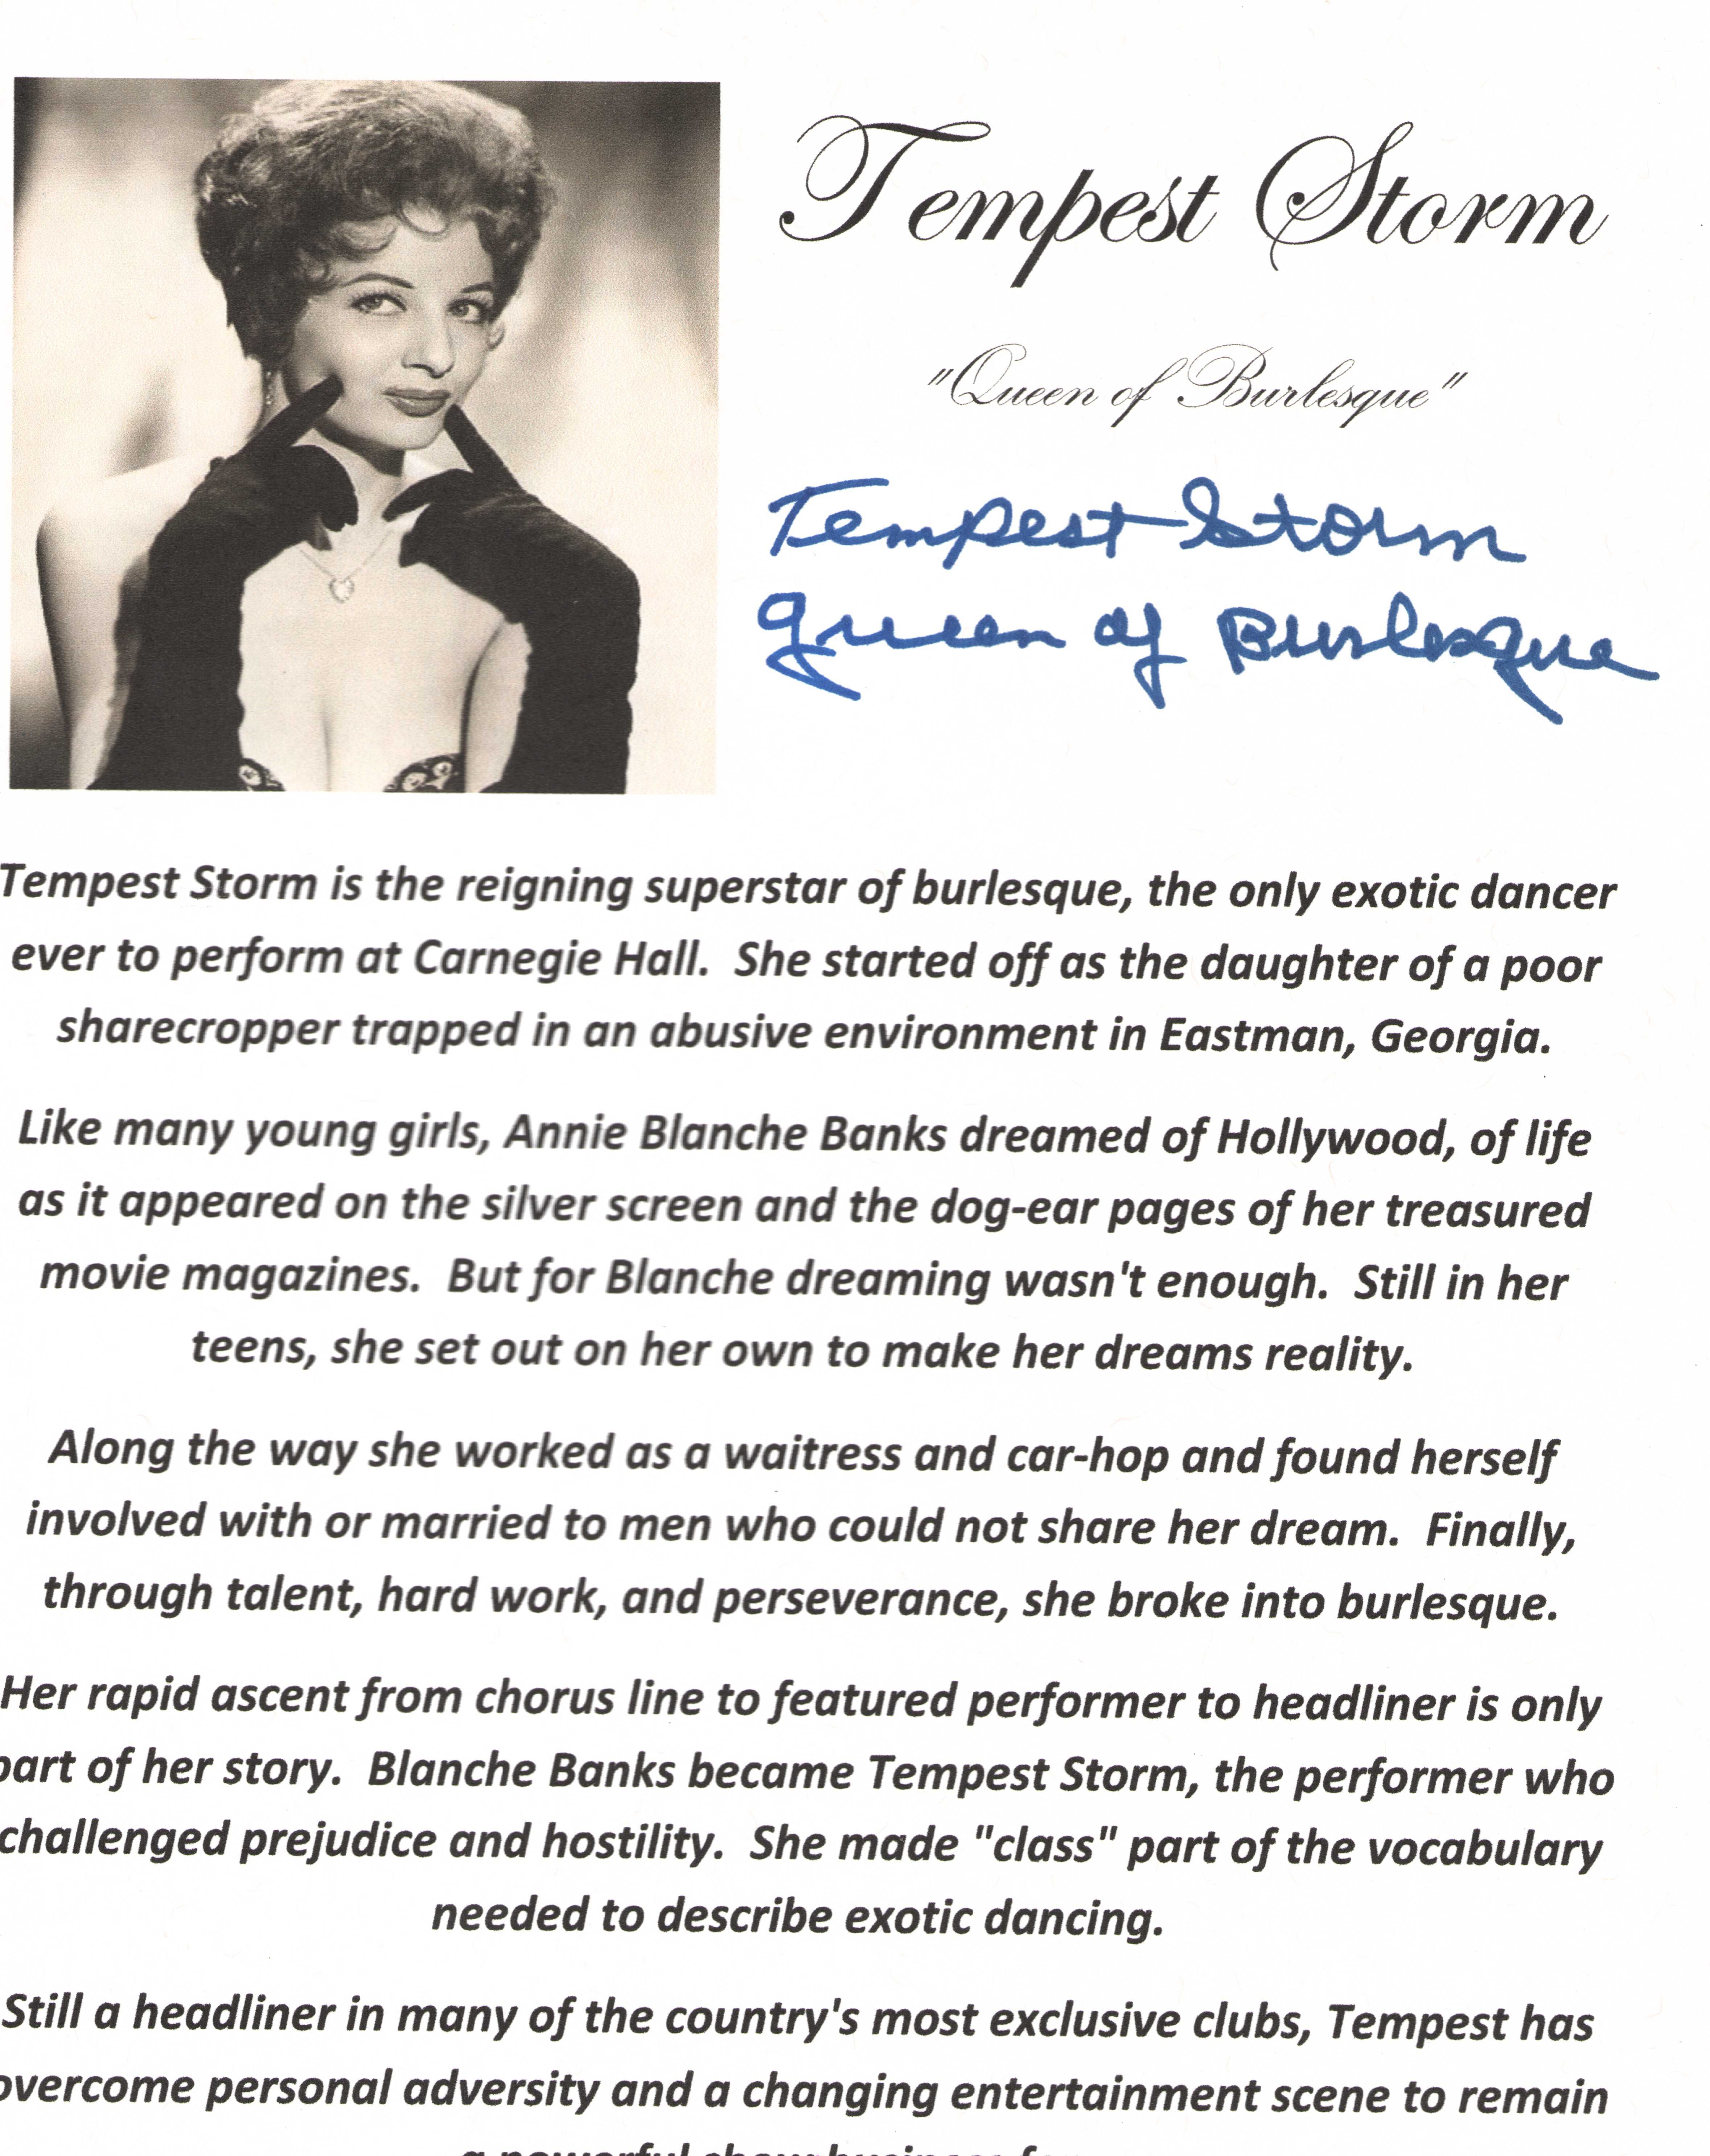 Tempest Storm
"Queen of Burlesque"
Tempest Storm
Queen of Burlesque
Tempest Storm is the reigning superstar of burlesque, the only exotic dancer
ever to perform at Carnegie Hall.  She started off as the daughter of a poor
sharecropper trapped in an abusive environment in Eastman, Georgia.
Like many young girls, Annie Blanche Banks dreamed of Hollywood, of life
as it appeared on the silver screen and the dog-ear pages of her treasured
movie magazines.  But for Blanche dreaming wasn't enough.  Still in her
teens, she set out on her own to make her dreams reality.
Along the way she worked as a waitress and car-hop and found herself
involved with or married to men who could not share her dream.  Finally,
through talent, hard work, and perseverance, she broke into burlesque.
Her rapid ascent from chorus line to featured performer to headliner is only
part of her story.  Blanche Banks became Tempest Storm, the performer who
challenged prejudice and hostility.  She made "class" part of the vocabulary
needed to describe exotic dancing.
Still a headliner in many of the country's most exclusive clubs, Tempest has
overcome personal adversity and a changing entertainment scene to remain
a powerful show business